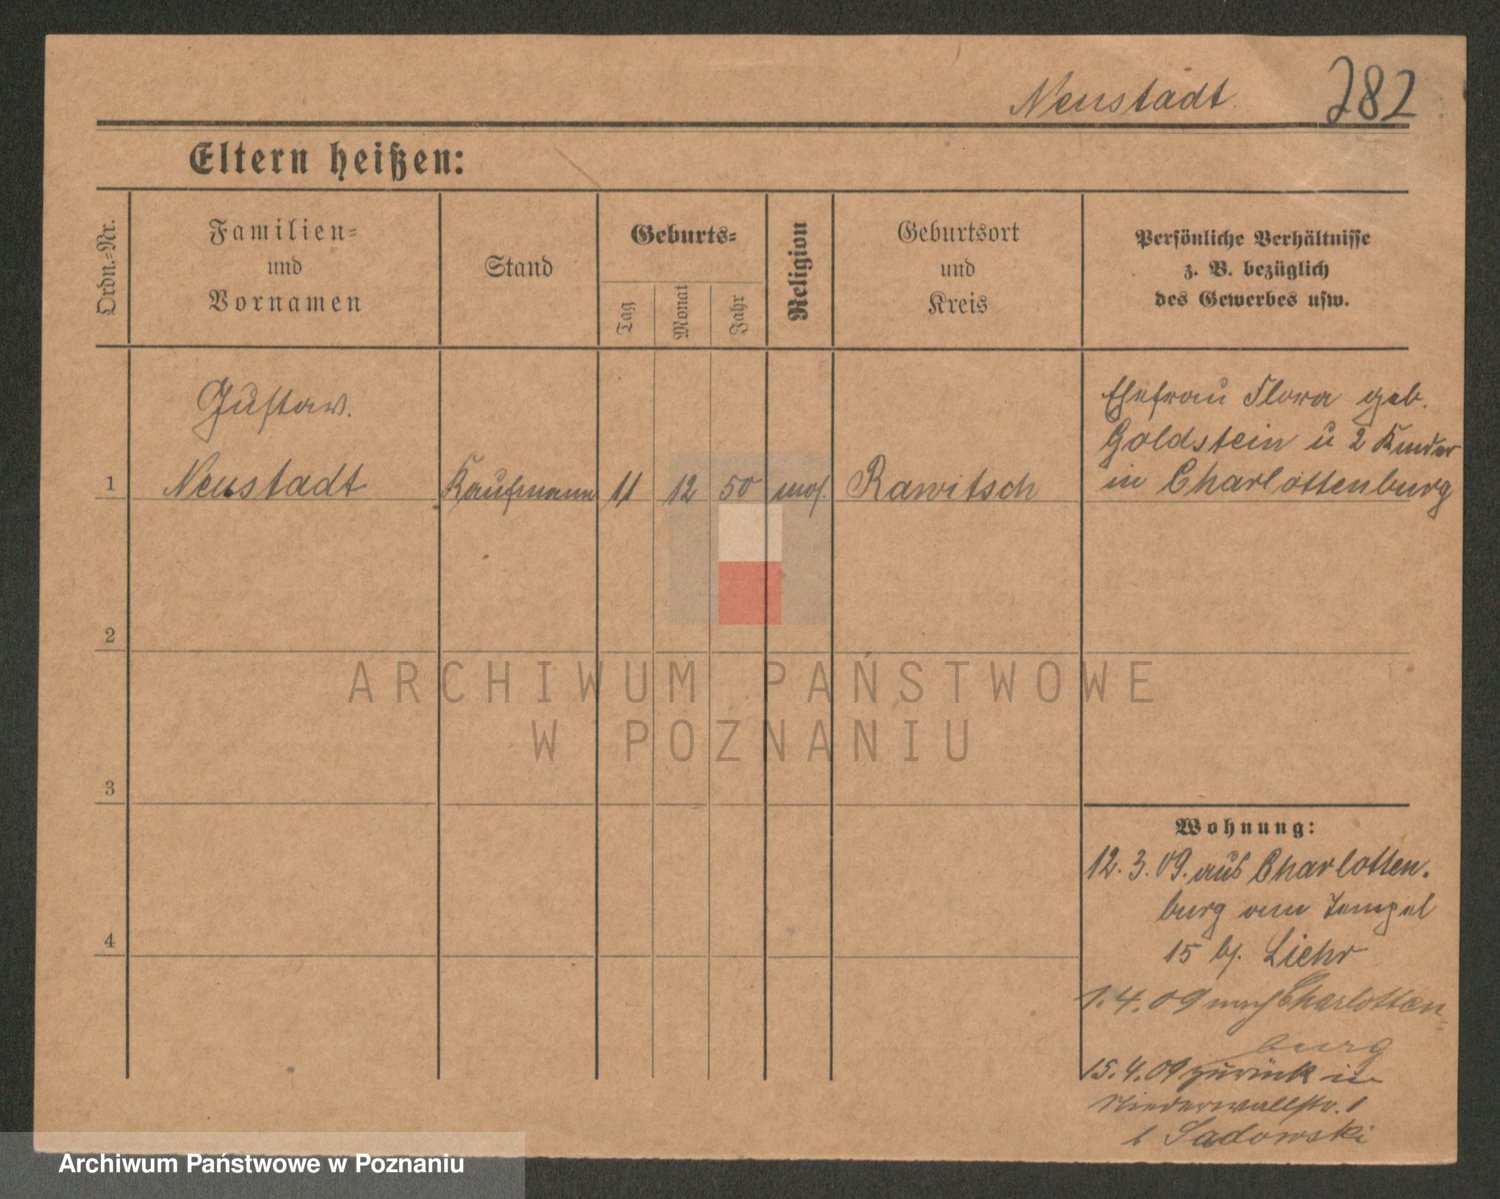 Neustadt
282
Eltern heißen:
Ordn.-Nr.
Familien-
und
Vornamen
Stand
Geburts-
Tag
Monat
Jahr
Religion
Geburtsort
und
Kreis
Persönliche Verhältnisse
z. B. bezüglich
des Gewerbes usw.
Gustav.
1 Neustadt Kaufmann 11 12 50 mos. Rawitsch
Ehefrau Flora geb.
Goldstein u 2 Kinder
in Charlottenburg
2
3
4
Wohnung:
12.3.09. aus Charlotten.
burg am Tempel
15 b/. Liehr
1.4.09 nach Charlotten-
burg
15.4.09 zurück in
Niederwallstr. 1
b Sadowski
ARCHIWUM PAŃSTWOWE
W POZNANIU
Archiwum Państwowe w Poznaniu